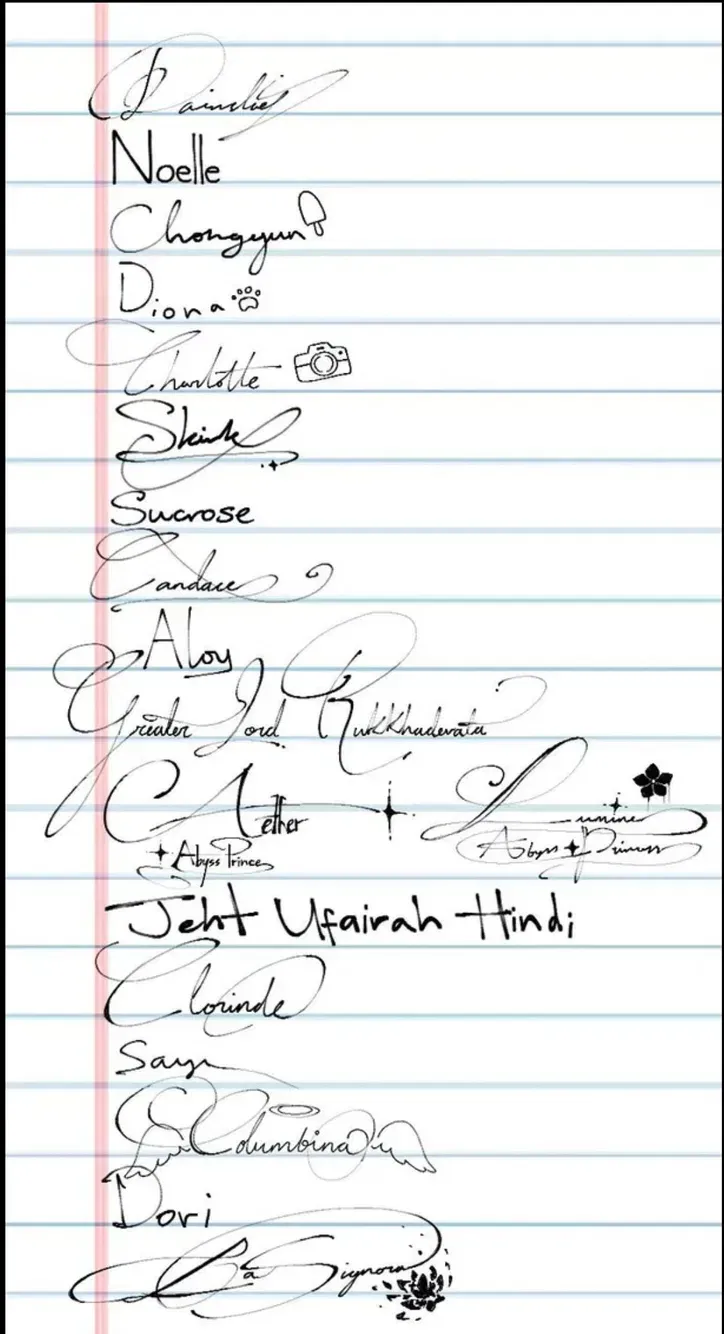 Dainslief
Noelle
Chongyun
Diona
Charlotte
Skirk
Sucrose
Candace
Aloy
Greater Lord Rukkhadevata
Aether Lumine
Abyss Prince Abyss Princess
Jeht Ufairah Hindi
Clorinde
Sayu
Columbina
Dori
La Signora